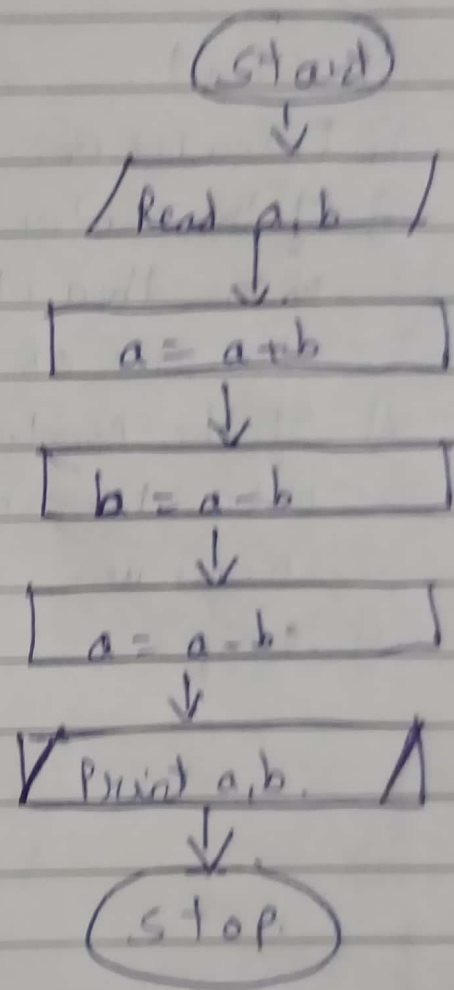 Start
Read a, b
a = a + b
b = a - b
a = a - b
Print a, b.
stop